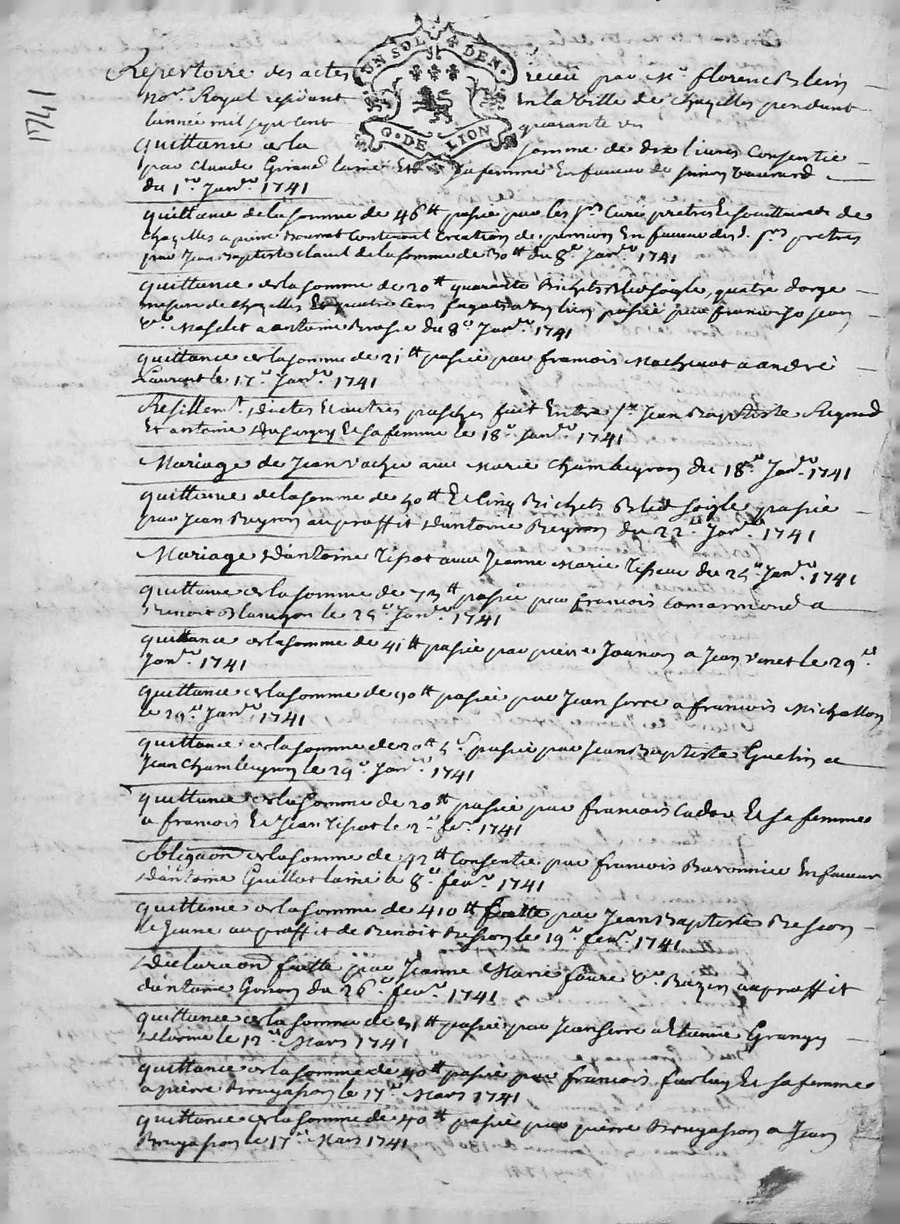 1741
UN SOL 4 DEN.
G. DE LION
Repertoire des actes receu par Me. florenc Blein
nore. Royal residant En la ville de chazelles pendant
lannée mil sept cent quarante un
quittance de la somme de dix livres Consentie
par claude Giraud laine Et sa femme En faveur de simon
du 1er. Janr. 1741
quittance de la somme de 46tt passée par les srs. Cure pretres Et societaires de
chazelles a pierre Contenant Creation de pension En faveur desd. srs pretres
par Jean Baptiste de la somme de 30tt du 8e. Janr. 1741
quittance de la somme de 20tt quarante Bichets Bled soigle, quatre dorge
mesure de chazelles Et quatre Cens passée par
a antoine du 8e. Janr. 1741
quittance de la somme de 21tt passée par francois a andré
Laurent le 17e. Janr. 1741
Resillemt. dactes Et autres pasches fait Entre sr. Jean Baptiste
Et antoine Et sa femme le 18e. Janr. 1741
Mariage de Jean vachez avec Marie Chambeyron du 18e. Janr. 1741
quittance de la somme de 50tt Et Cinq Bichets Bled soigle passée
par Jean Beyron au proffit dantoine Beyron du 22e. Janr. 1741
Mariage dantoine Tissot avec Jeanne Marie du 25e. Janr. 1741
quittance de la somme de 73tt passée par francois Comarmond a
Benoit le 25e. Janr. 1741
quittance de la somme de 41tt passée par pierre Jounon a Jean le 29e.
Janr. 1741
quittance de la somme de 90tt passée par Jean serre a francois Michallon
le 29e. Janr. 1741
quittance de la somme de 20tt 5s. passée par Jean Baptiste Guelin a
Jean Chambeyron le 29e. Janr. 1741
quittance de la somme de 20tt passée par francois Cador Et sa femme
a francois Et Jean Tissot le 2e. fevr. 1741
obligaon de la somme de 42tt Consentie par francois Baronnier En faveur
dantoine Guillot laine le 8e. fevr. 1741
quittance de la somme de 410tt faitte par Jean Baptiste Besson
le Jeune au proffit de Benoit Besson le 19e. fevr. 1741
declaraon faitte par Jeanne Marie faure ve. Bazin au proffit
dantoine Gonon du 26e. fevr. 1741
quittance de la somme de 31tt passée par Jean serre a Etienne Grangy
delorme le 12e. Mars 1741
quittance de la somme de 90tt passée par francois Et sa femme
a pierre Bruyasson le 17e. Mars 1741
quittance de la somme de 40tt passée par pierre Bruyasson a Jean
Bruyasson le 17e. Mars 1741